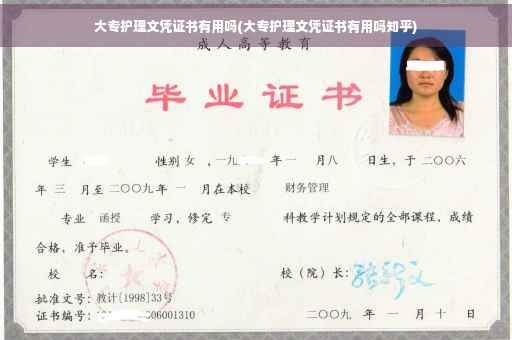 大专护理文凭证书有用吗(大专护理文凭证书有用吗知乎)
成人高等教育
毕业证书
学生 性别 女 ,一九 年 一 月八 日生,于 二〇〇六
年 三 月至 二〇〇九 年 一 月在本校 财务管理
专业 函授 学习,修完 专 科教学计划规定的全部课程,成绩
合格,准予毕业。
校 名: 校(院)长:
批准文号:教计[1998]33号
证书编号: 06001310 二〇〇九 年 一 月 十 日